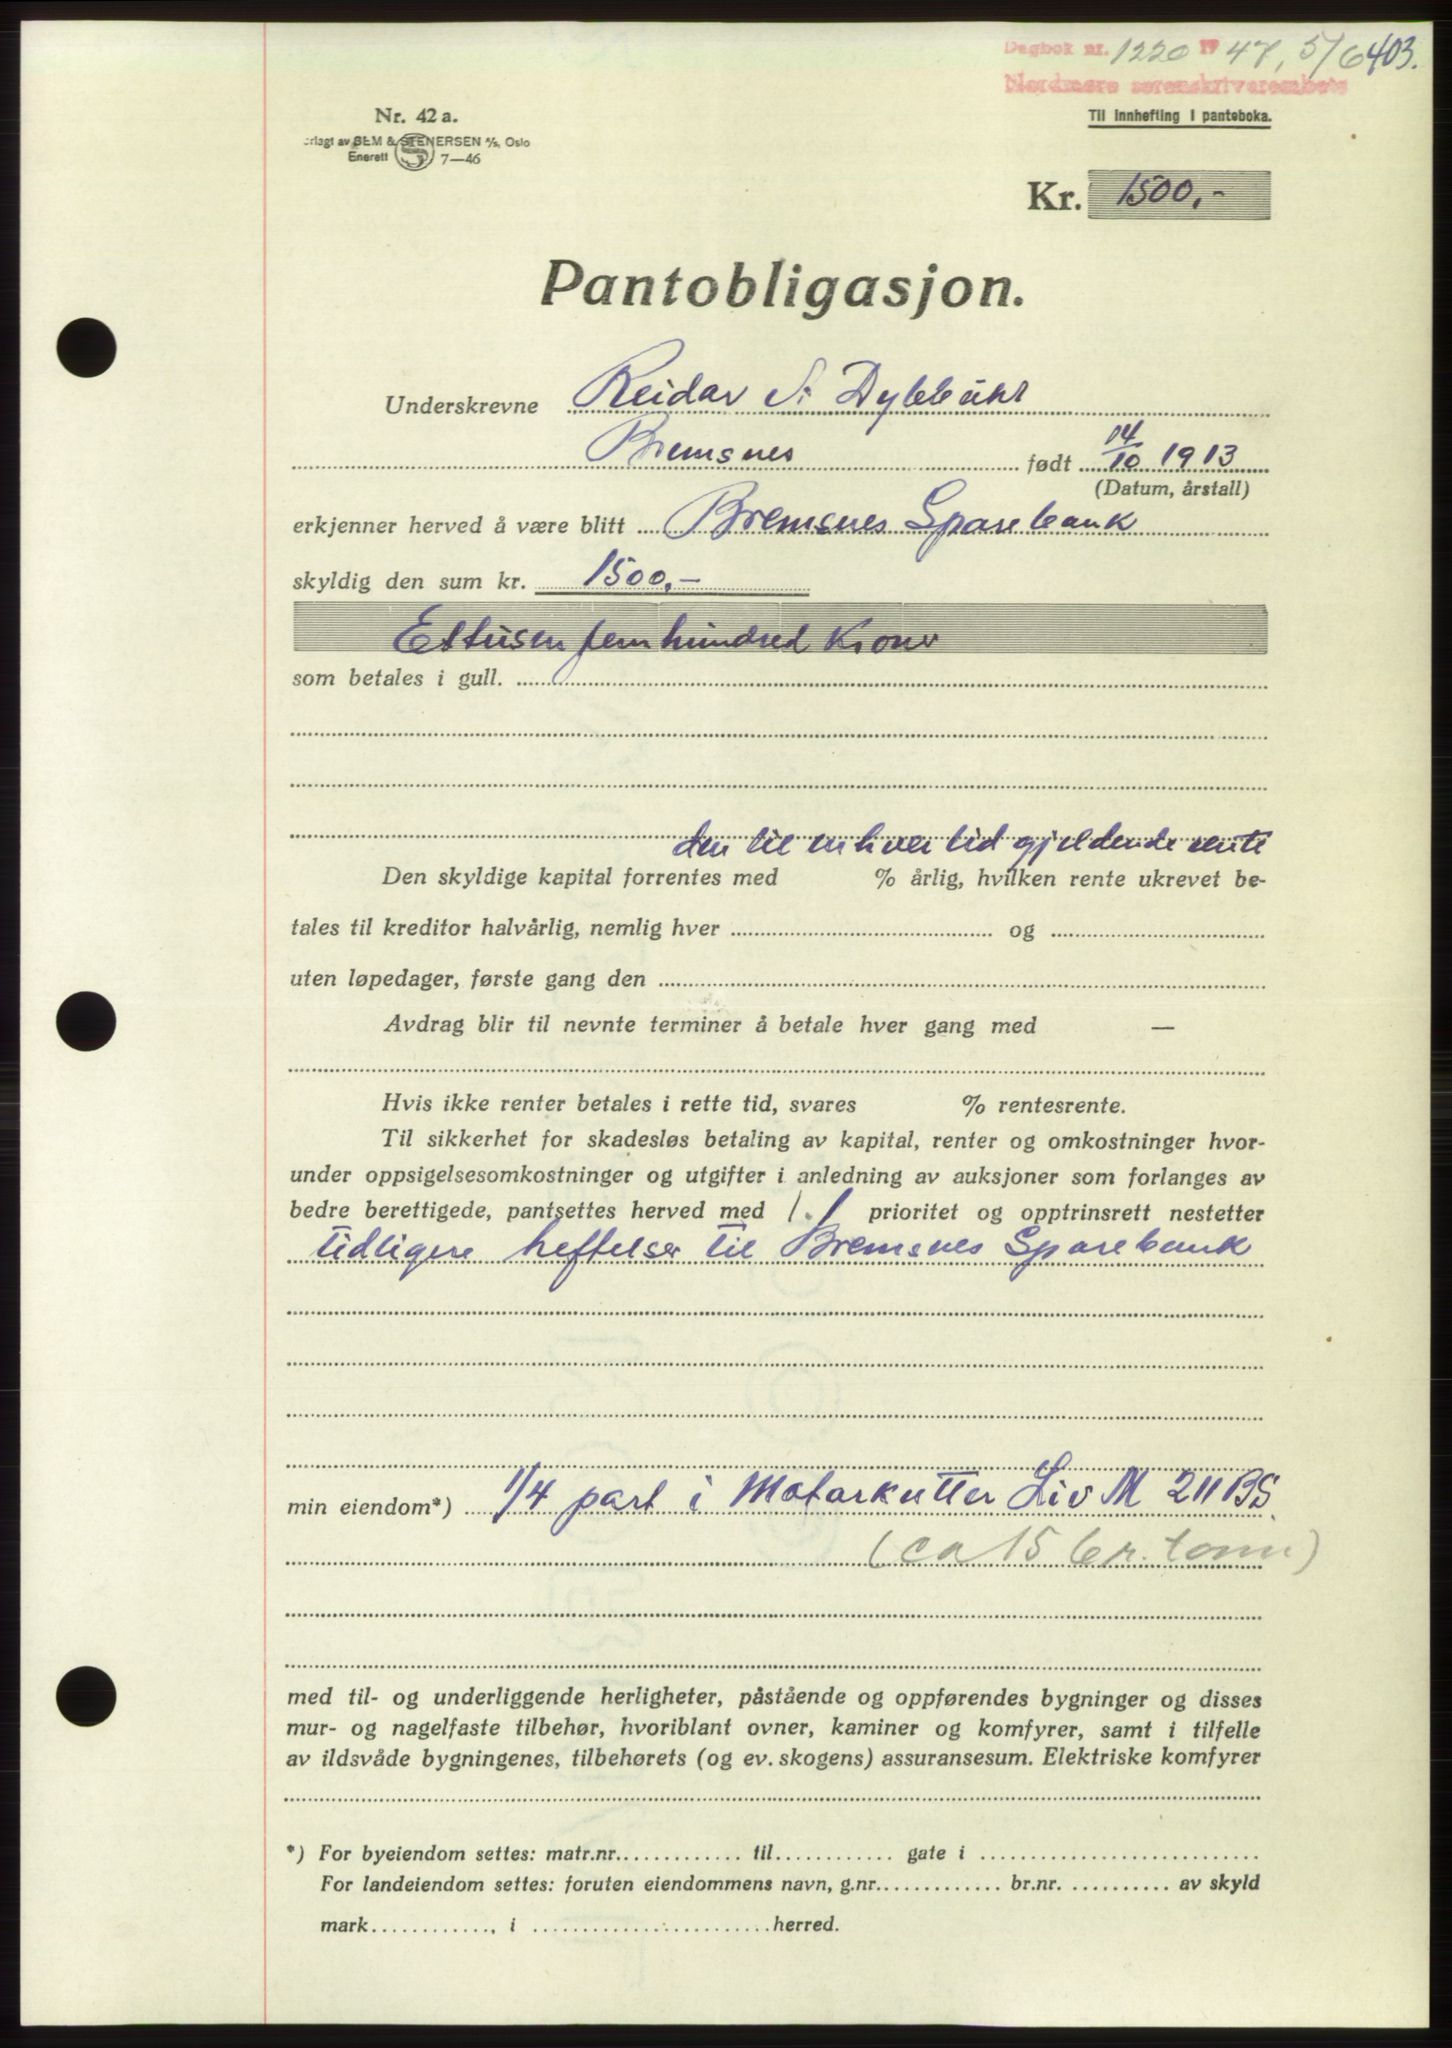 Dagbok nr. 1220 1947, 5/6 403.
Nordmøre sorenskriverembete
Nr. 42 a.
Til innhefting i panteboka.
rlagt av SEM & STENERSEN A/S, Oslo
Enerett 7—46
Kr. 1500,-
Pantobligasjon.
Underskrevne Reidar S. Dybbuhl
Bremsnes født 14/10 1913
(Datum, årstall)
erkjenner herved å være blitt Bremsnes Sparebank
skyldig den sum kr. 1500,-
Ettusen fem hundred kroner
som betales i gull.
den til enhver tid gjeldende rente
Den skyldige kapital forrentes med % årlig, hvilken rente ukrevet be-
tales til kreditor halvårlig, nemlig hver og
uten løpedager, første gang den
Avdrag blir til nevnte terminer å betale hver gang med —
Hvis ikke renter betales i rette tid, svares % rentesrente.
Til sikkerhet for skadesløs betaling av kapital, renter og omkostninger hvor-
under oppsigelsesomkostninger og utgifter i anledning av auksjoner som forlanges av
bedre berettigede, pantsettes herved med 1. prioritet og opptrinsrett nestetter
tidligere heftelser til Bremsnes Sparebank
min eiendom*) 1/4 part i Motorkutter Liv M 211 BS.
(ca 15 br. tonn)
med til- og underliggende herligheter, påstående og oppførendes bygninger og disses
mur- og nagelfaste tilbehør, hvoriblant ovner, kaminer og komfyrer, samt i tilfelle
av ildsvåde bygningenes, tilbehørets (og ev. skogens) assuransesum. Elektriske komfyrer
*) For byeiendom settes: matr.nr. til gate i
For landeiendom settes: foruten eiendommens navn, g.nr. br.nr. av skyld
mark , i herred.